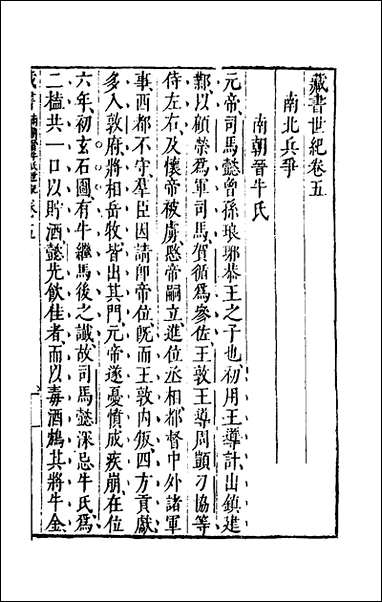 藏書世紀卷五
南北兵爭
南朝晉牛氏
元帝司馬懿曾孫琅琊恭王之子也初用王導計出鎮建
鄴以顧榮爲軍司馬賀循爲參佐王敦王導周顗刁協等
侍左右及懷帝被虜愍帝嗣立進位丞相都督中外諸軍
事西都不守羣臣因請卽帝位旣而王敦內叛四方貢獻
多入敦府將相岳牧皆出其門元帝遂憂憤成疾崩在位
六年初玄石圖有牛繼馬後之讖故司馬懿深忌牛氏爲
二榼共一口以貯酒懿先飲佳者而以毒酒鴆其將牛金
藏書 卷五